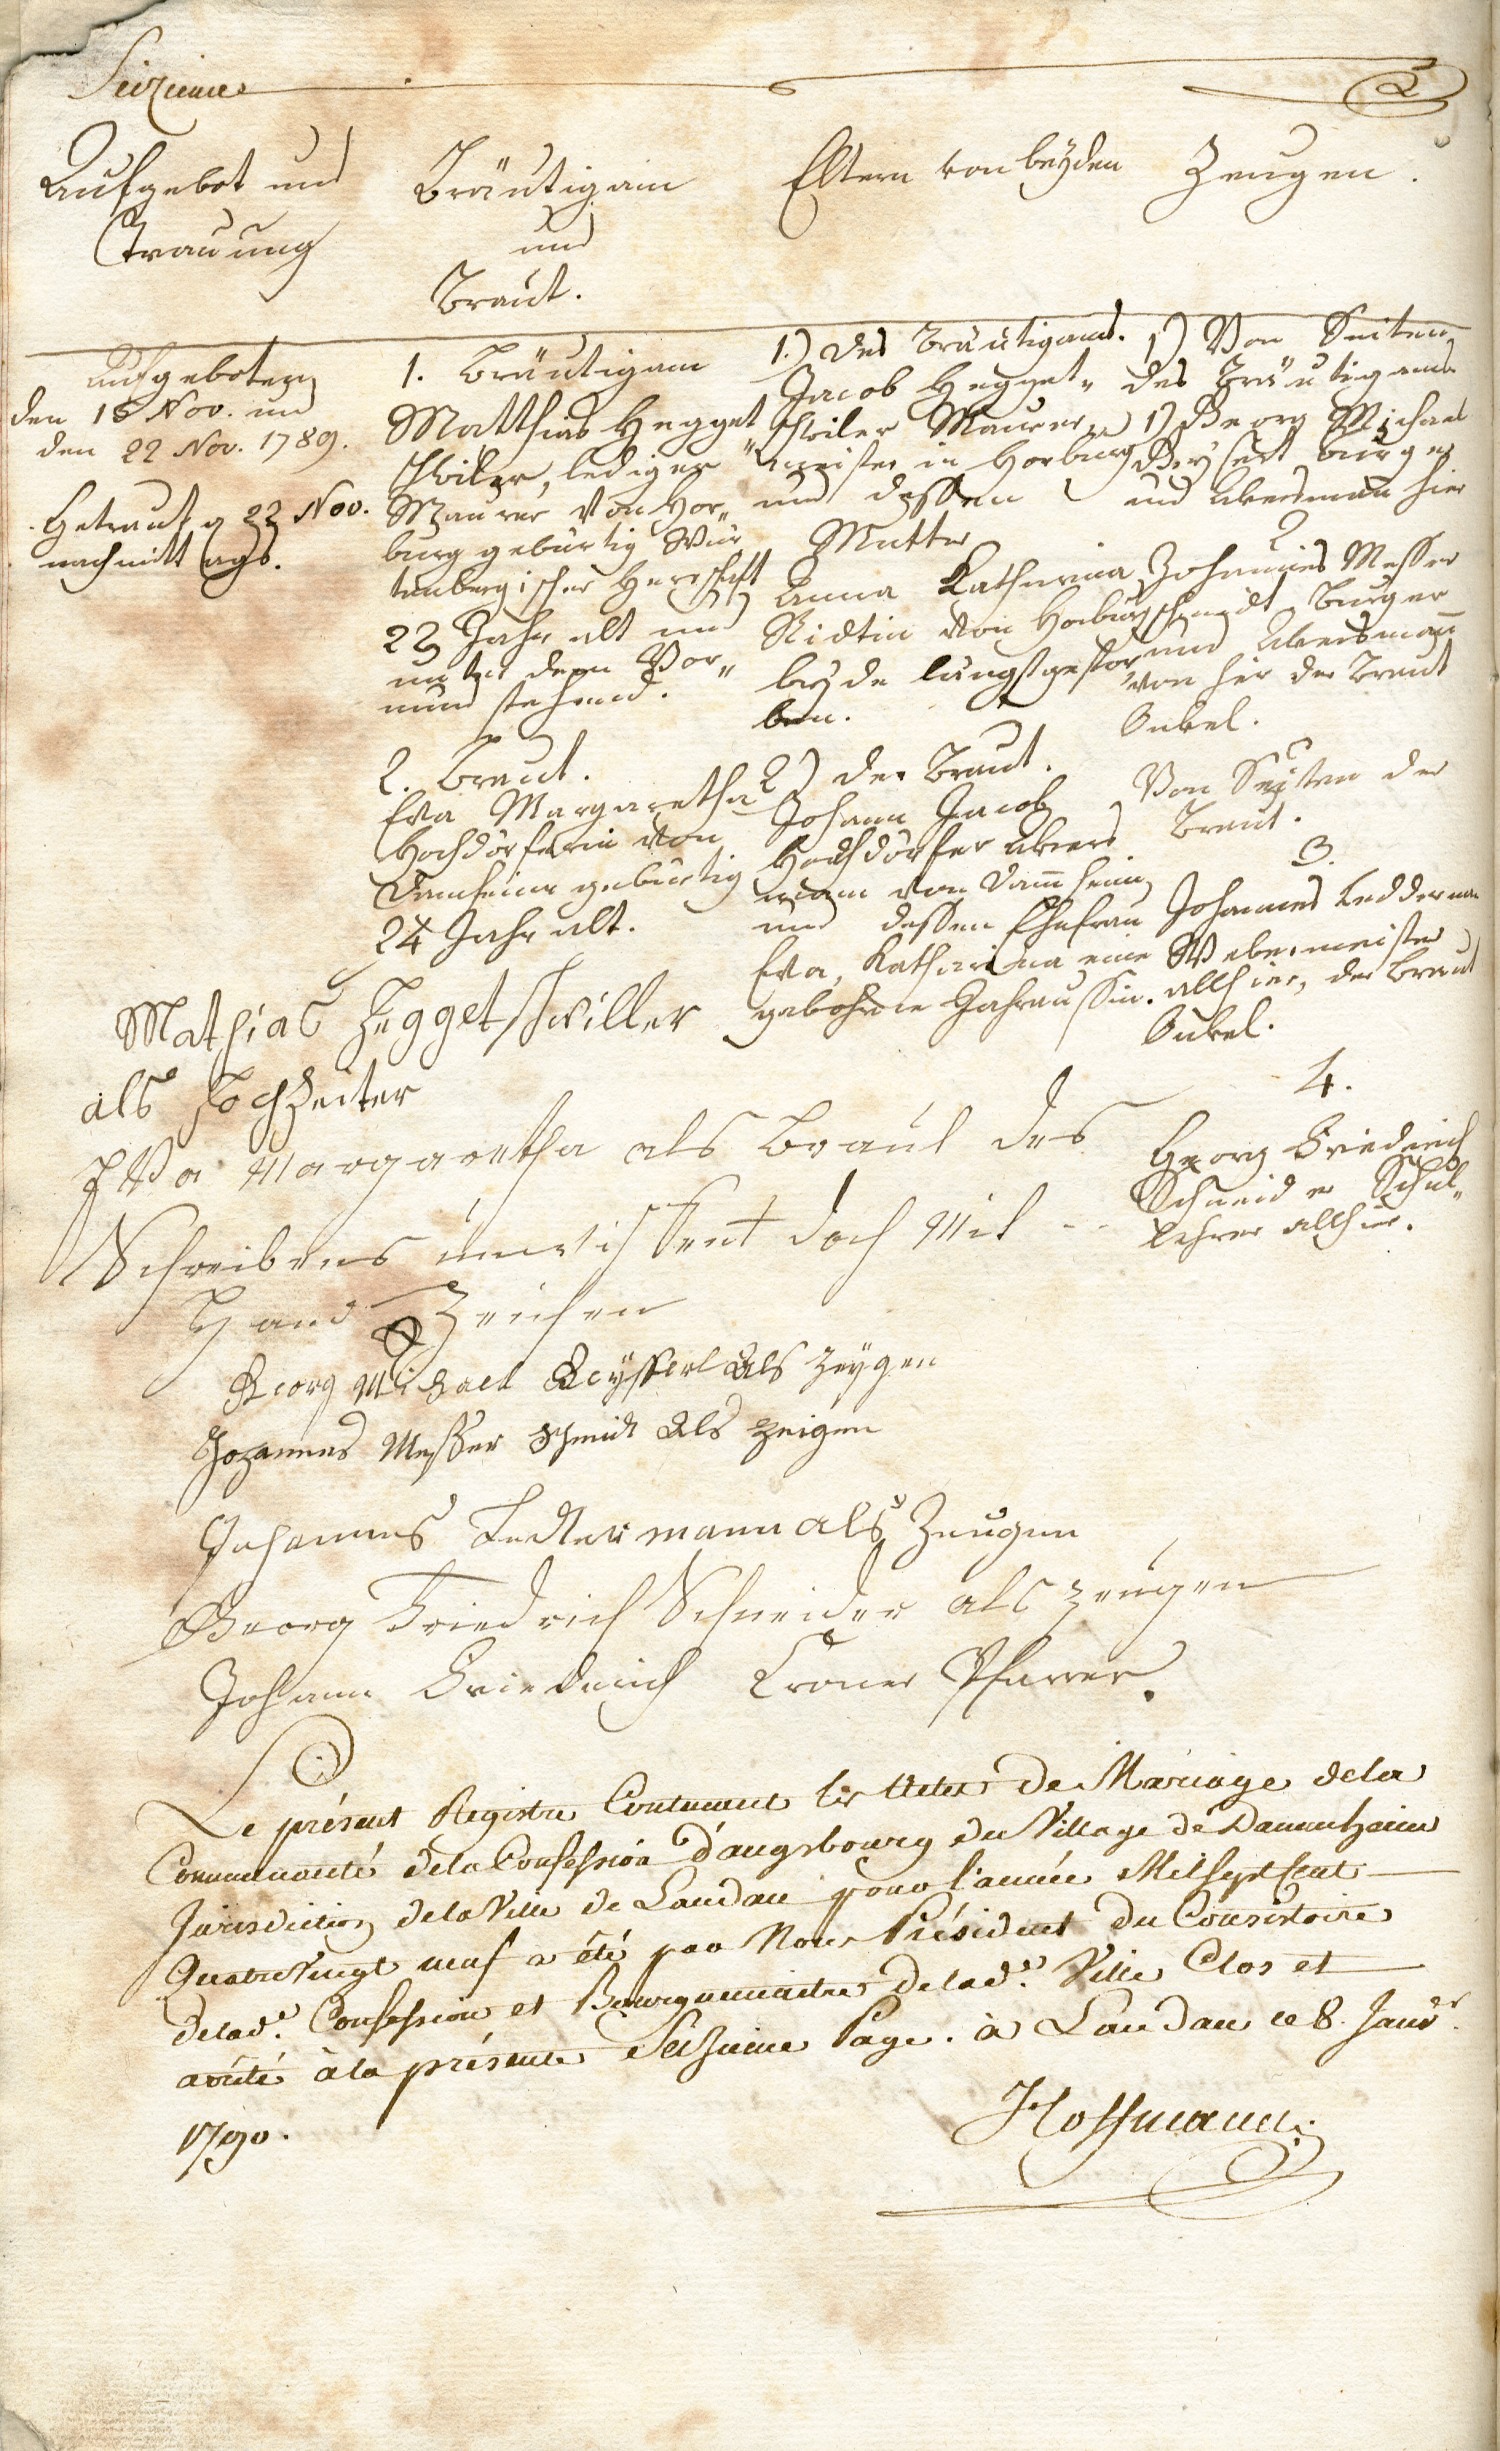 Seizieme
Aufgebot und
Trauung
Bräutigam
und
Braut.
Eltern von beyden
Zeugen.
Aufgeboten
den 15 Nov. und
den 22 Nov. 1789.
Getraut, 22 Nov.
nachmittags.
1. Bräutigam
Matthias Hegget
schwiler, lediger
Maurer von Hor„
burg gebürtig Wür
tenbergischer Herrschaft
23 Jahr alt und
unter dem Vor„
mund stehend.
2. Braut.
Eva Margaretha
Hochdörferin von
Damheim gebürtig
24 Jahr alt.
1.) des Bräutigams.
Jacob Hegget„
schwiler Maurer„
meister in Horburg
und dessen
Mutter
Anna Katharina
von Horburg
beyde längst gestor
ben.
2) der Braut.
Johann Jacob
Hochdörfer Akers
mann von Dam̄heim
und dessen Ehefrau
Eva, Katharina eine
gebohrne
1) Von Seiten
des Bräutigams
1) Georg Michael
Geysert burger
und Akersmann hier
2
Johannes Messer
schmidt, burger
und Akersman̄
von hier der Braut
Onkel.
Von Seiten der
Braut.
3.
Johannes Ledderman
Webermeister
allhier, der Braut
Onkel.
4.
Georg Friedrich
Schneider Schul„
lehrer allhier.
Mathias Heggetschwiller
als Hochzeiter
Eva Margaretha als Braut des
Schreibens unwissent doch mit --
Hand Zeichen
Georg Michael Geyssert als Zeygen
Johannes Messer Schmidt als Zeigen
Johannes Ledtermann als Zeugen
Georg Friedrich Schneider als Zeugen
Johann Friedrich Croner Pfarrer.
Le présent Registre Contenant les Actes de Mariage dela
Communauté dela Confession d'augsbourg du Village de Dammheim
Jurisdiction dela Ville de Landau pour l'année Mil Sept Cent
Quatre Vingt neuf a été par Nous Président du Consistoire
delad.e Confession et Bourguemaitre delad.e Ville Clos et
arrêté à la présente Seizieme Page. à Landau ce 8. Janv.r
1790.
Hoffmann